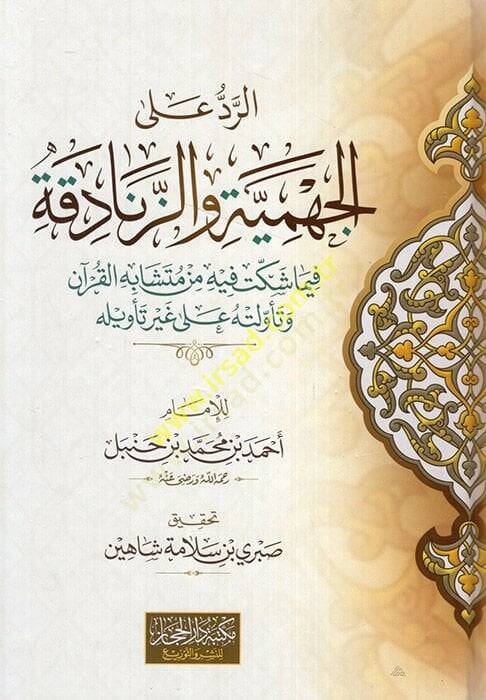 الرَّدُّ عَلَى
الجَهْمِيَّةِ وَالزَّنَادِقَةِ
فِيمَا شَكَّتْ فِيهِ مِنْ مُتَشَابِهِ القُرْآنِ
وَتَأَوَّلَتْهُ عَلَى غَيْرِ تَأْوِيلِهِ
لِلإِمَامِ
أَحْمَدَ بْنِ مُحَمَّدِ بْنِ حَنْبَلٍ
رَحِمَهُ اللهُ وَرَضِيَ عَنْهُ
تحقيق
صَبْرِي بْنِ سَلَامَة شَاهِين
مكتبة دار الحجاز
للنشر والتوزيع
www.irsad.com.tr